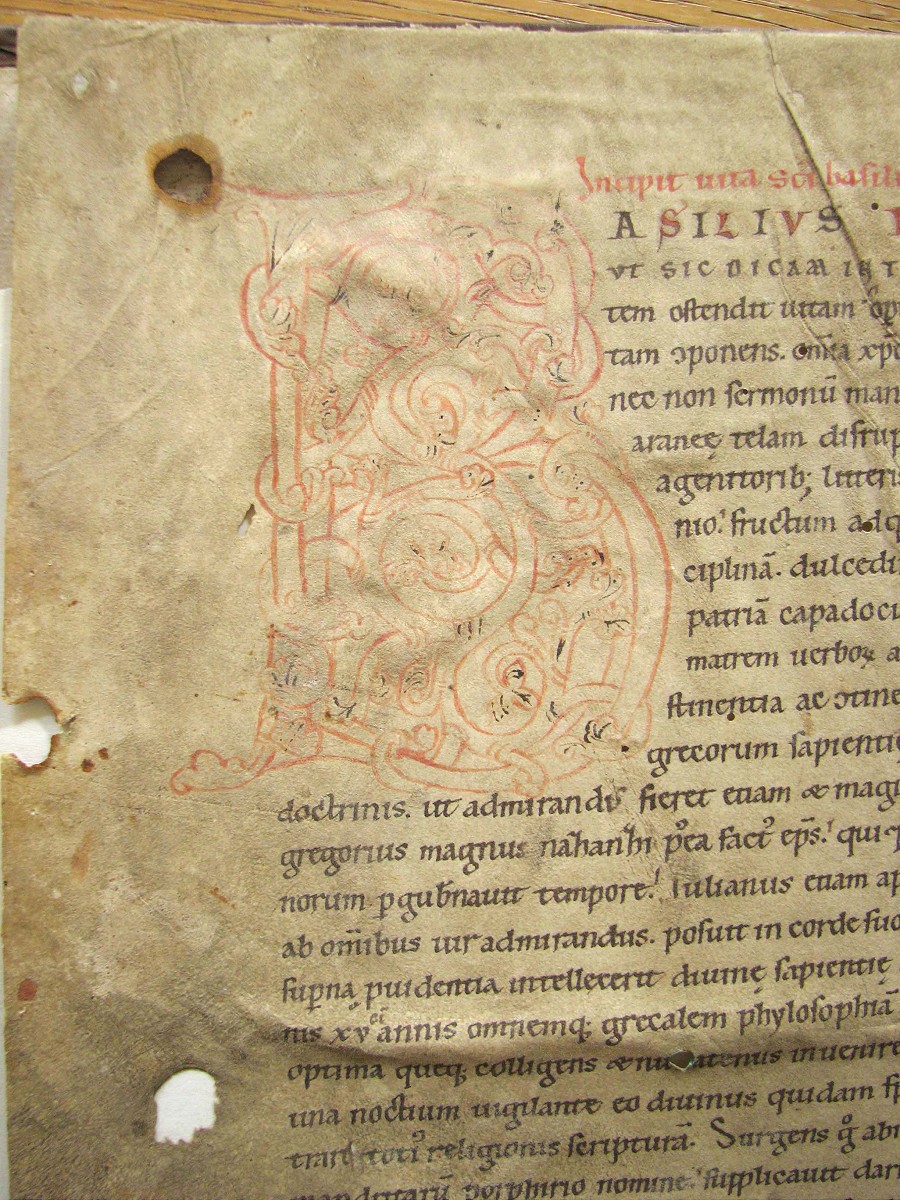 Incipit uita sc̄i basili
ASILIVS
VT SIC DICAM INT
tem ostendit uitam op
tam ɔponens. om̄ia xp̄
nec non sermonū man
araneę telam disrup
agentorib; litteris
nio. fructum adq
ciplinā. dulcedi
patriā capadoci
matrem uerboꝝ a
stinentia ac ɔtine
grecorum sapientię
doctrinis. ut admirandꝰ fieret etiam & mag
gregorius magnus p̊ea factꝰ ep̄s. qui
norum ꝑgub̄nauit tempore. Iulianus etiam ap
ab om̄ibus uir admirandus. posuit in corde suo
suꝑna ꝓuidentia intellexerit diuinę sapientię
nis xv annis omnemq; grecalem phylosophiā
optima queq; colligens & inuenire
una noctium uigilante eo diuinus quidam sp
totiꝰ religionis scripturā. Surgens g̊ abi
mandritarū porphirio nomine. supplicauit dari